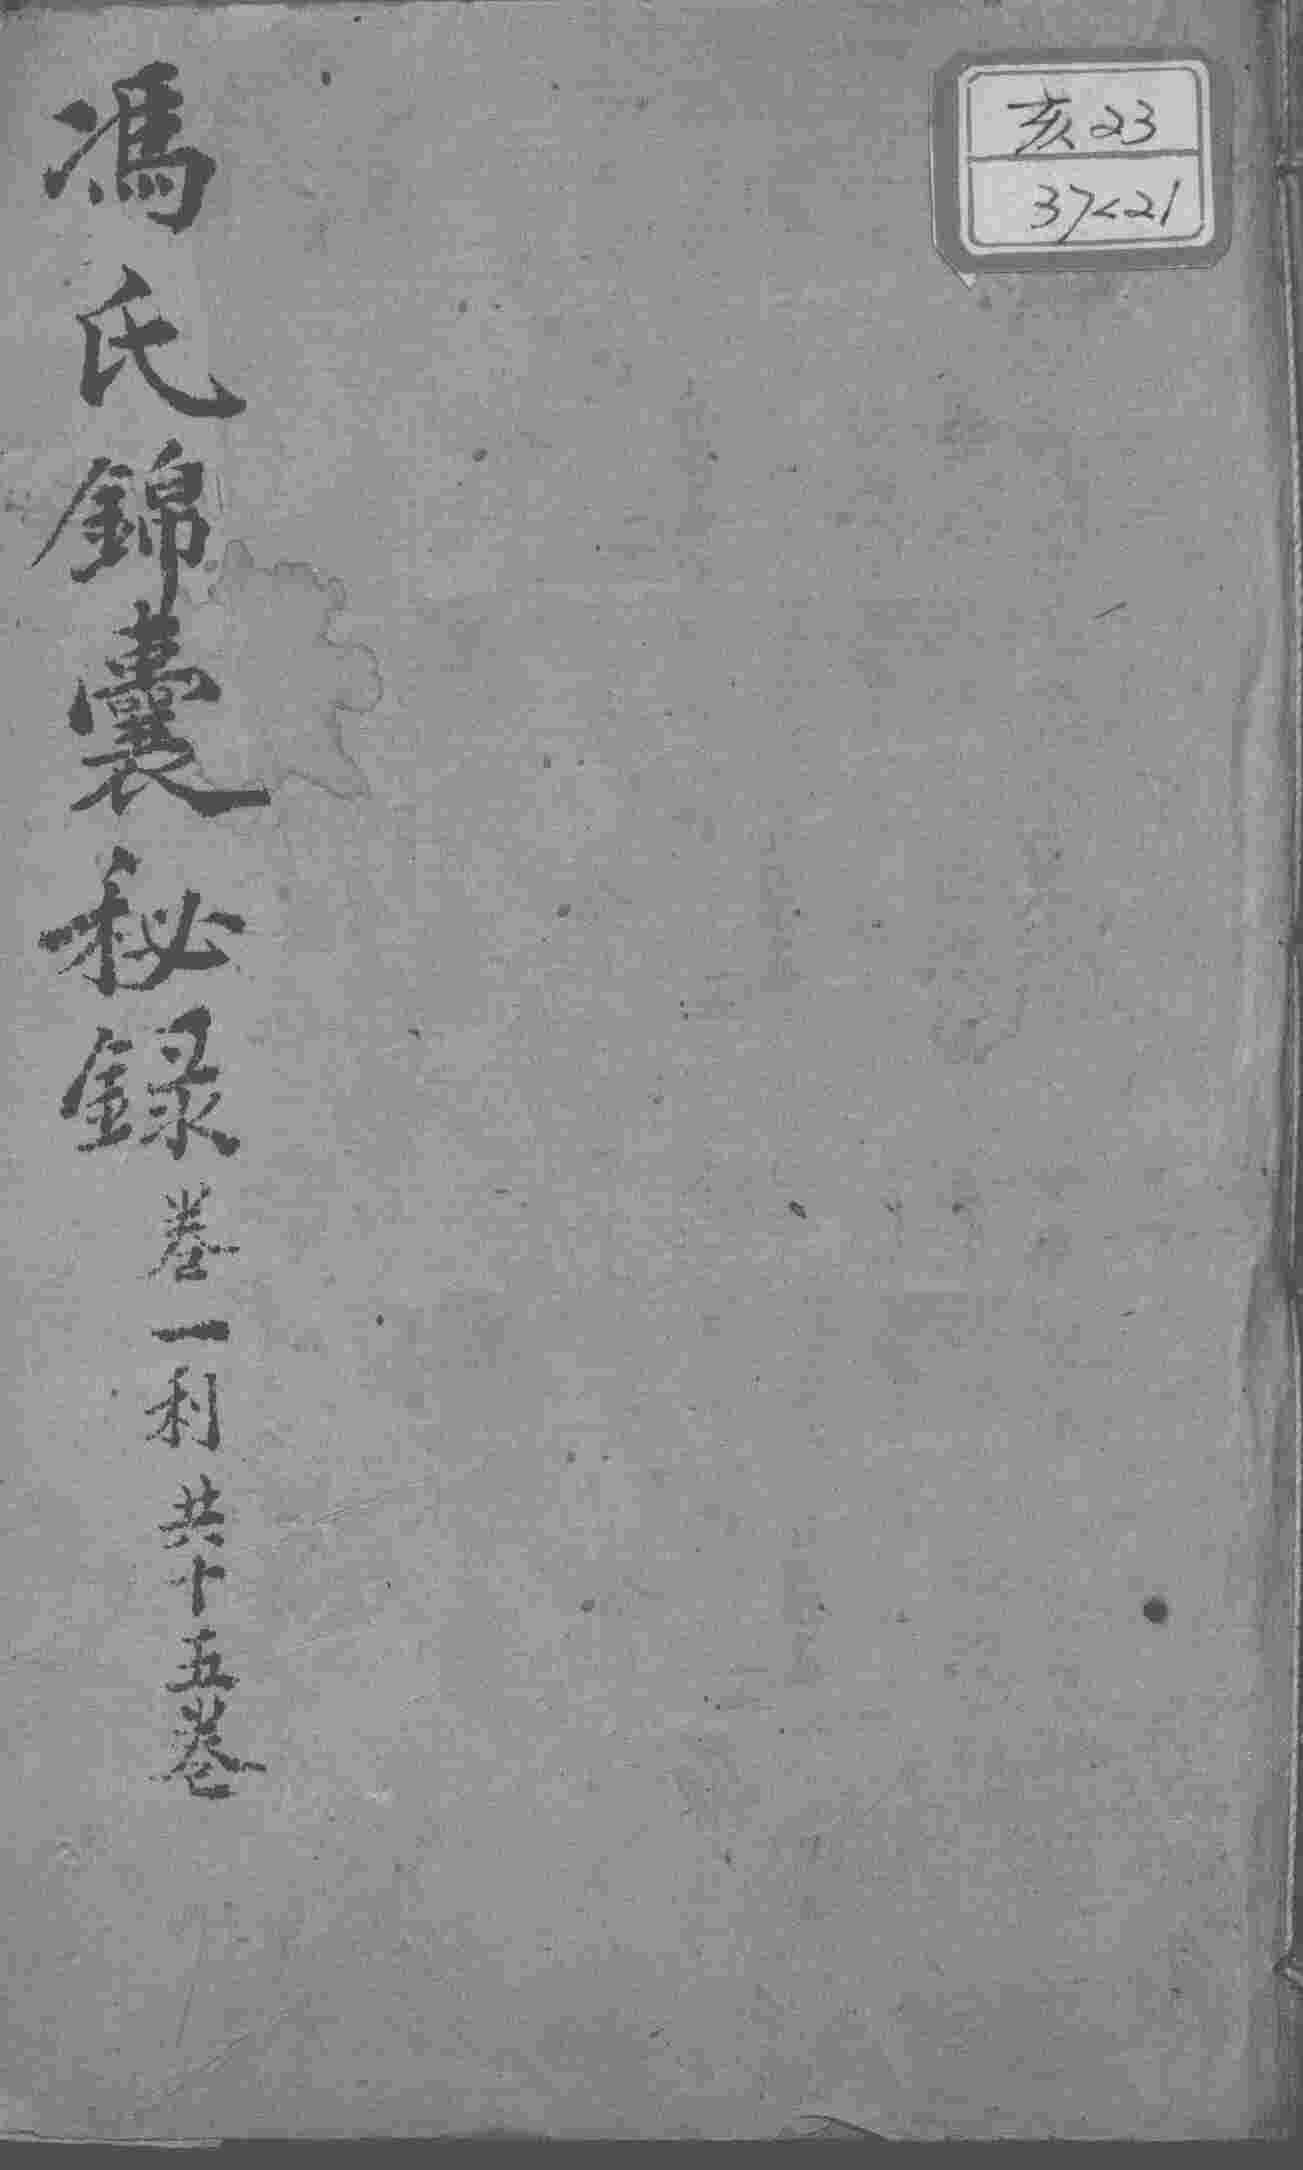 亥23
37<21
馮氏錦囊秘録卷一利共十五卷